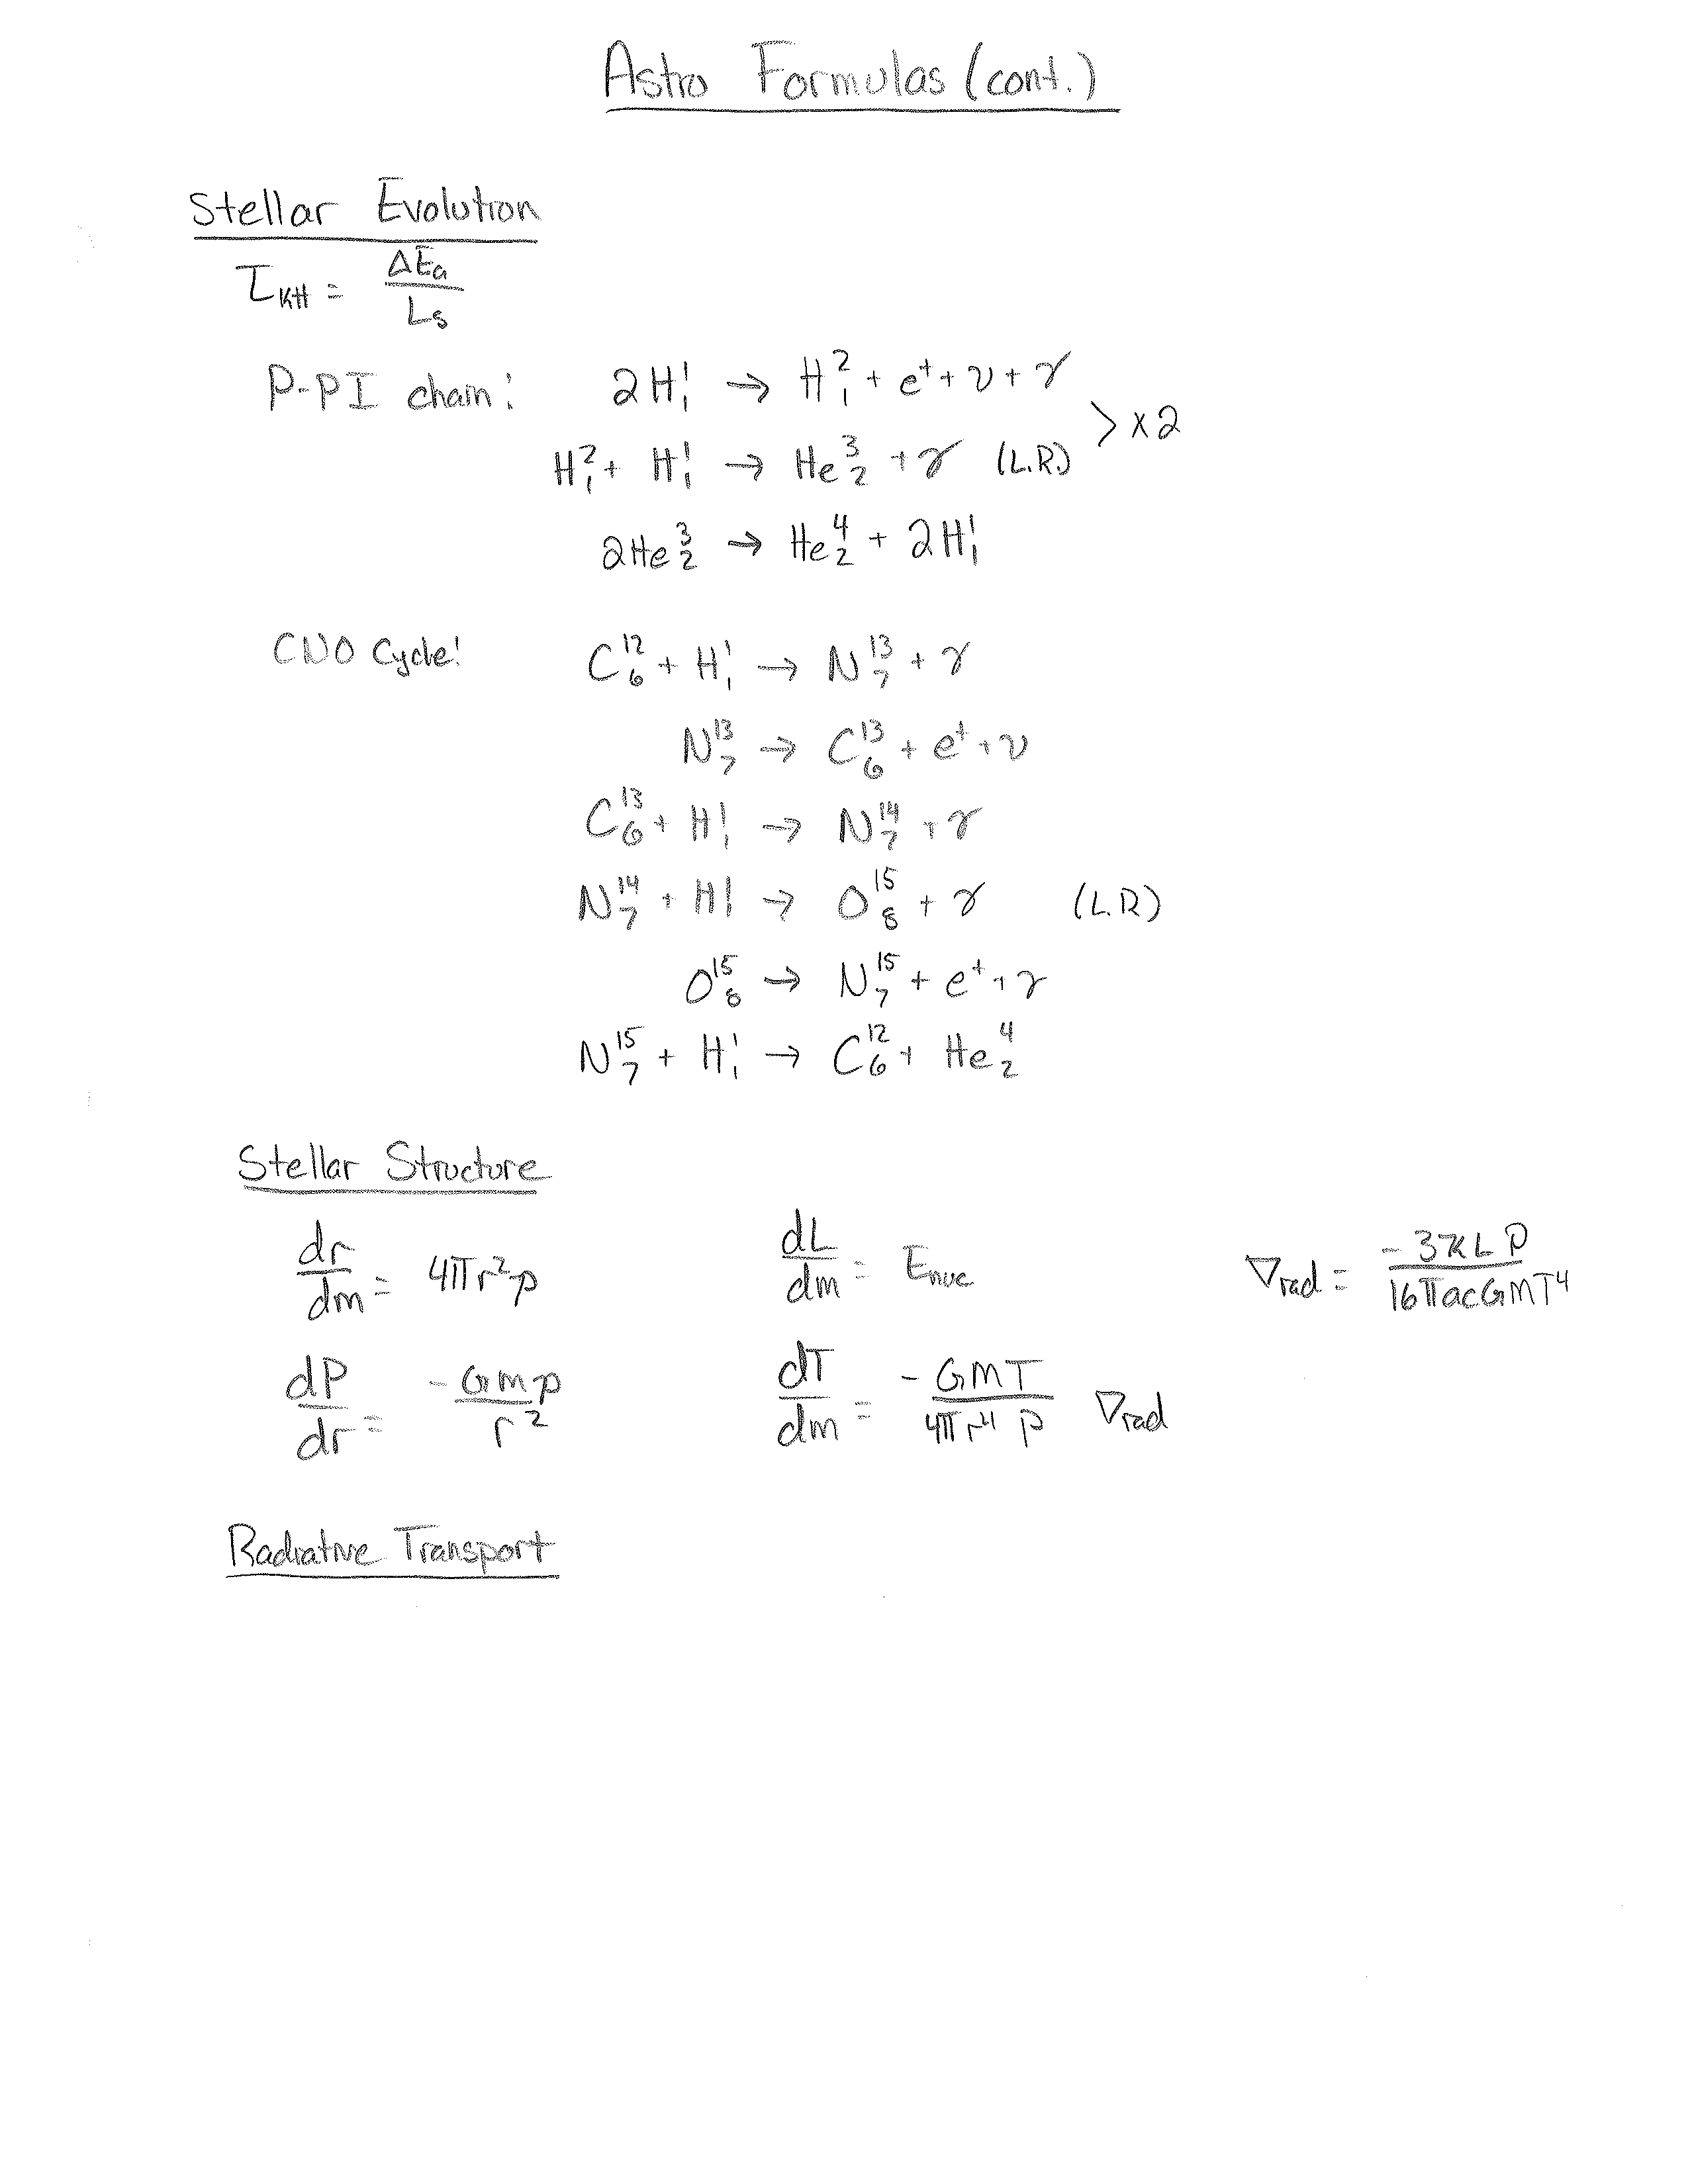 Astro Formulas (cont.)
Stellar Evolution
τ_KH = ΔE_G / L_s
P-PI chain: 2H¹₁ → H²₁ + e⁺ + ν + γ
> x2
H²₁ + H¹₁ → He³₂ + γ (L.R.)
2He³₂ → He⁴₂ + 2H¹₁
CNO Cycle: C¹²₆ + H¹₁ → N¹³₇ + γ
N¹³₇ → C¹³₆ + e⁺ + ν
C¹³₆ + H¹₁ → N¹⁴₇ + γ
N¹⁴₇ + H¹₁ → O¹⁵₈ + γ (L.R)
O¹⁵₈ → N¹⁵₇ + e⁺ + γ
N¹⁵₇ + H¹₁ → C¹²₆ + He⁴₂
Stellar Structure
dr/dm = 4πr²ρ dL/dm = E_nuc ∇_rad = -3κLP / 16πacGMT⁴
dP/dr = -Gmρ / r² dT/dm = -GMT / 4πr⁴P ∇_rad
Radiative Transport